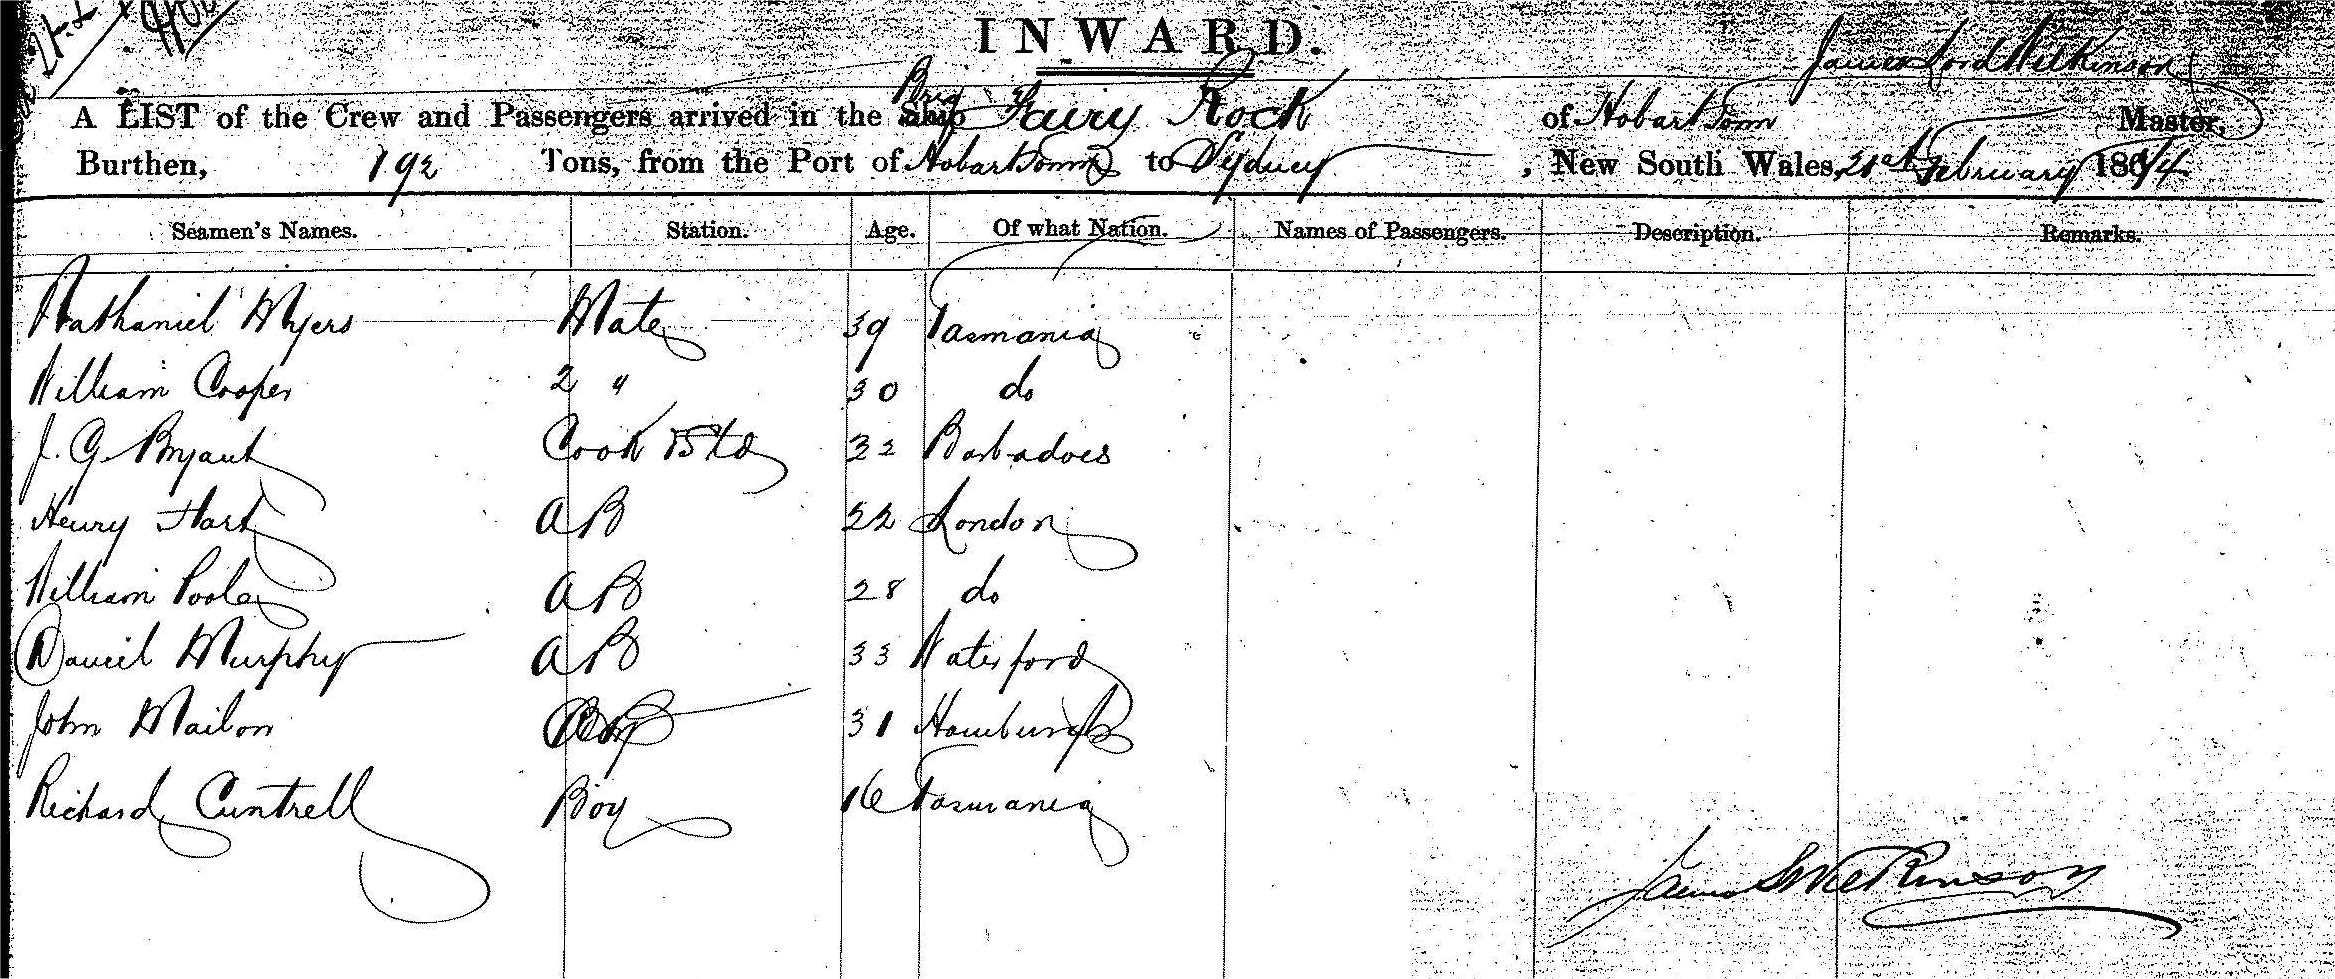 INWARD.
James Lord Wilkinson
A LIST of the Crew and Passengers arrived in the Ship Brig Fairy Rock of Hobart Town Master,
Burthen, 192 Tons, from the Port of Hobart Town to Sydney, New South Wales, 21st February 1864
Seamen's Names. Station. Age. Of what Nation. Names of Passengers. Description. Remarks.
Nathaniel Myers Mate 39 Tasmania
William Cooper 2 " 30 do
J. G Bryant Cook & Std 32 Barbadoes
Henry Hart AB 22 London
William Poole AB 28 do
Daniel Murphy AB 33 Waterford
John Mailon 31 Hamburgh
Richard Cuntrell Boy 16 Tasmania
James L Wilkinson